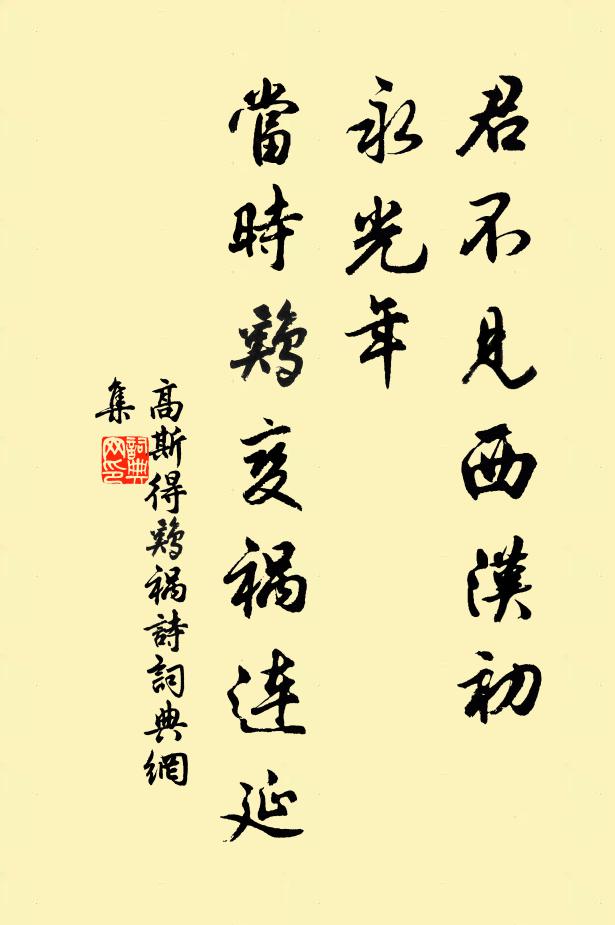 君不見西漢初
永光年
當時鷄變禍連延
高斯得鷄禍詩詞典網
集
詞典
网印